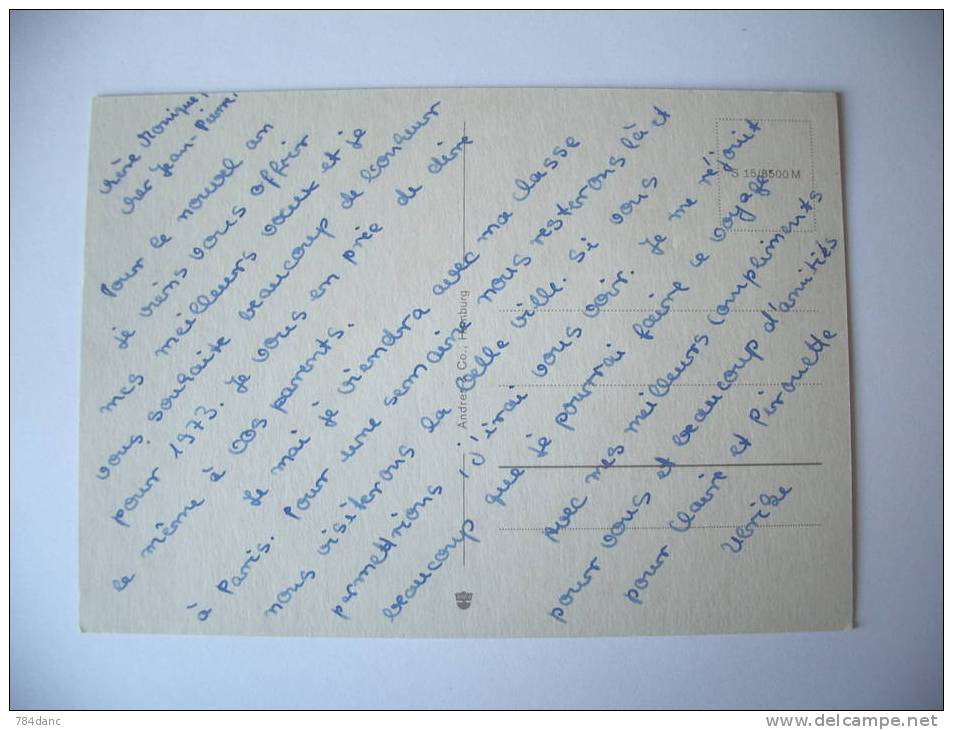 Chère Monique,
cher Jean-Pierre,
Pour le nouvel an
je viens vous offrir
mes meilleurs vœux et je
vous souhaite beaucoup de bonheur
pour 1973. Je vous en prie de dire
le même à vos parents.
Le mai je viendra avec ma classe
à Paris. Pour une semaine nous resterons là et
nous visiterons la belle ville. Si vous
permettrions, j'irai vous voir. Je me réjouit
beaucoup que je pourrai faire ce voyage.
Avec mes meilleurs compliments
pour vous et beaucoup d'amitiés
pour Claire et Pirouette
Ulrike
Andres Co., Hamburg
S 15/8500 M
784danc
www.delcampe.net